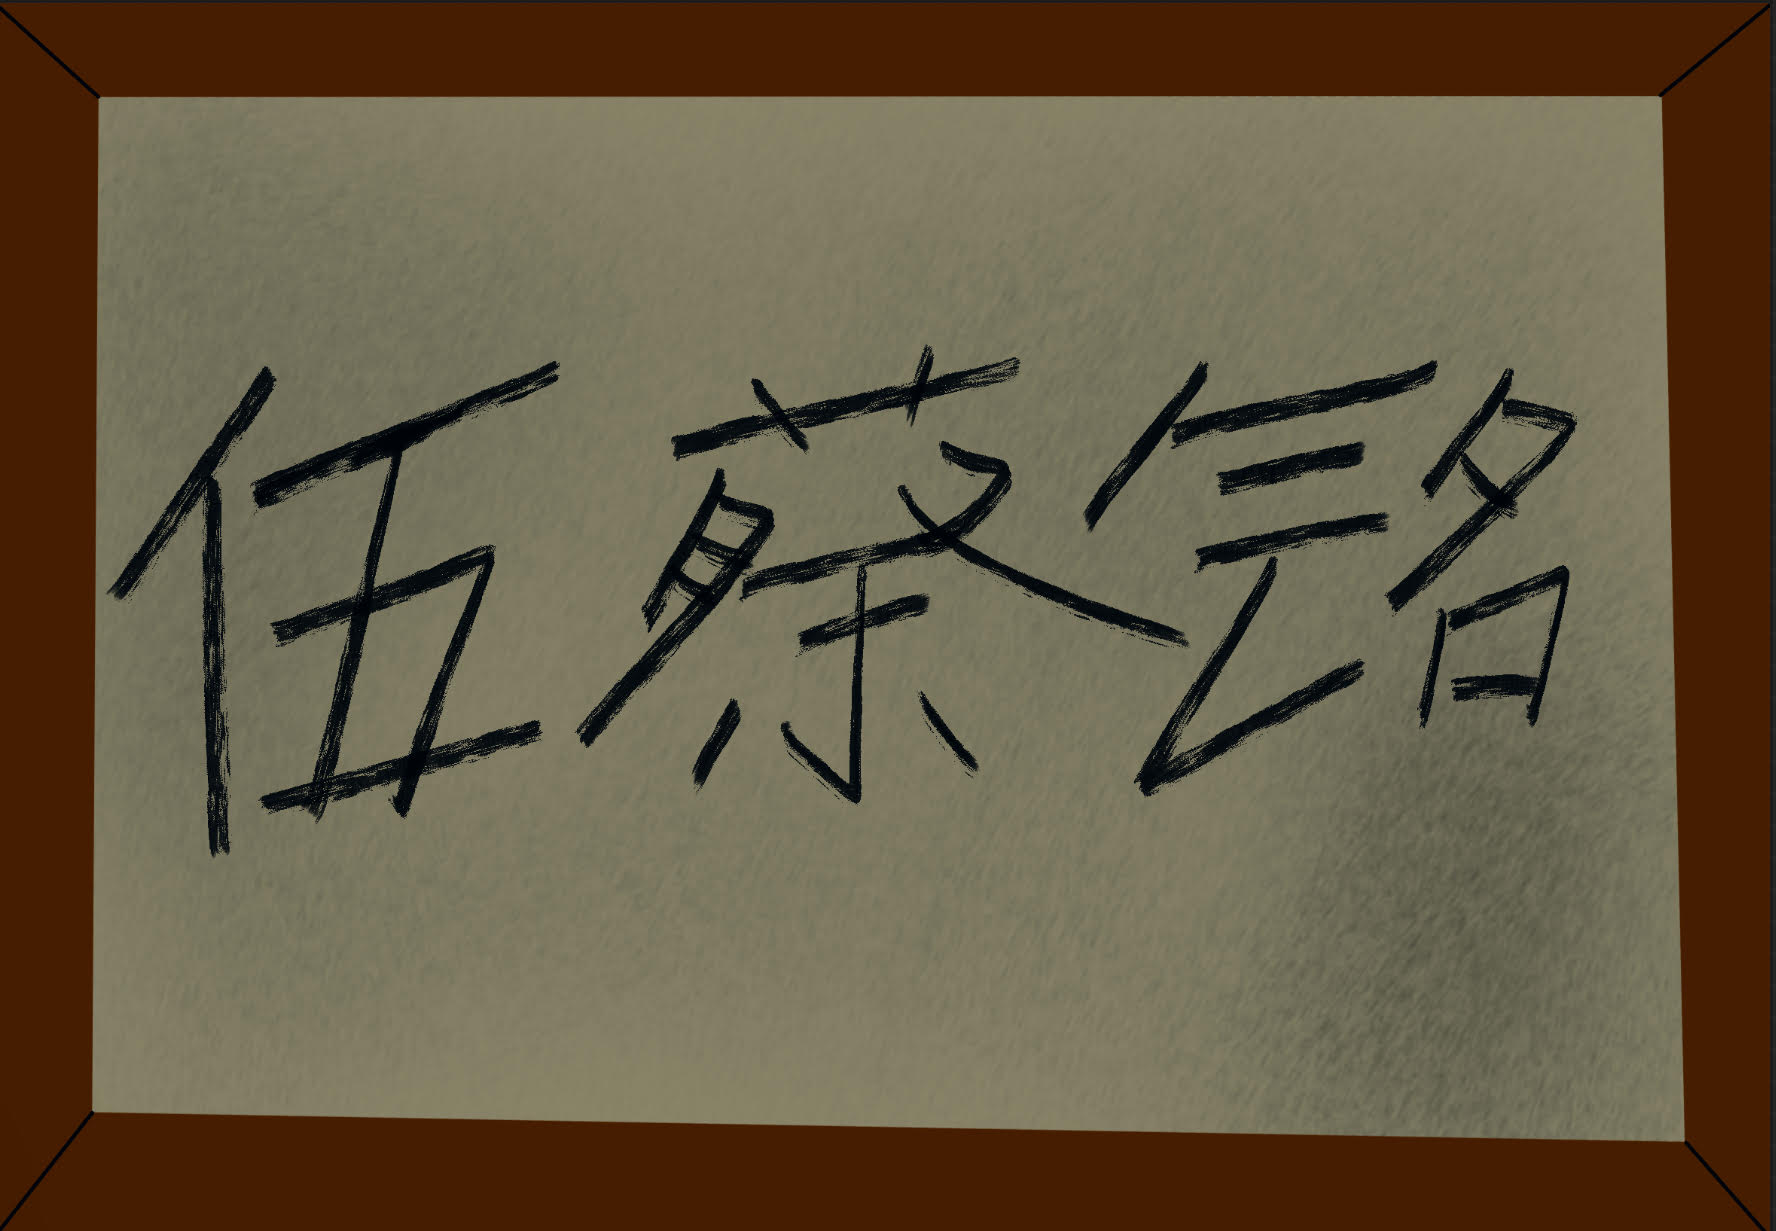 伍蔡铭